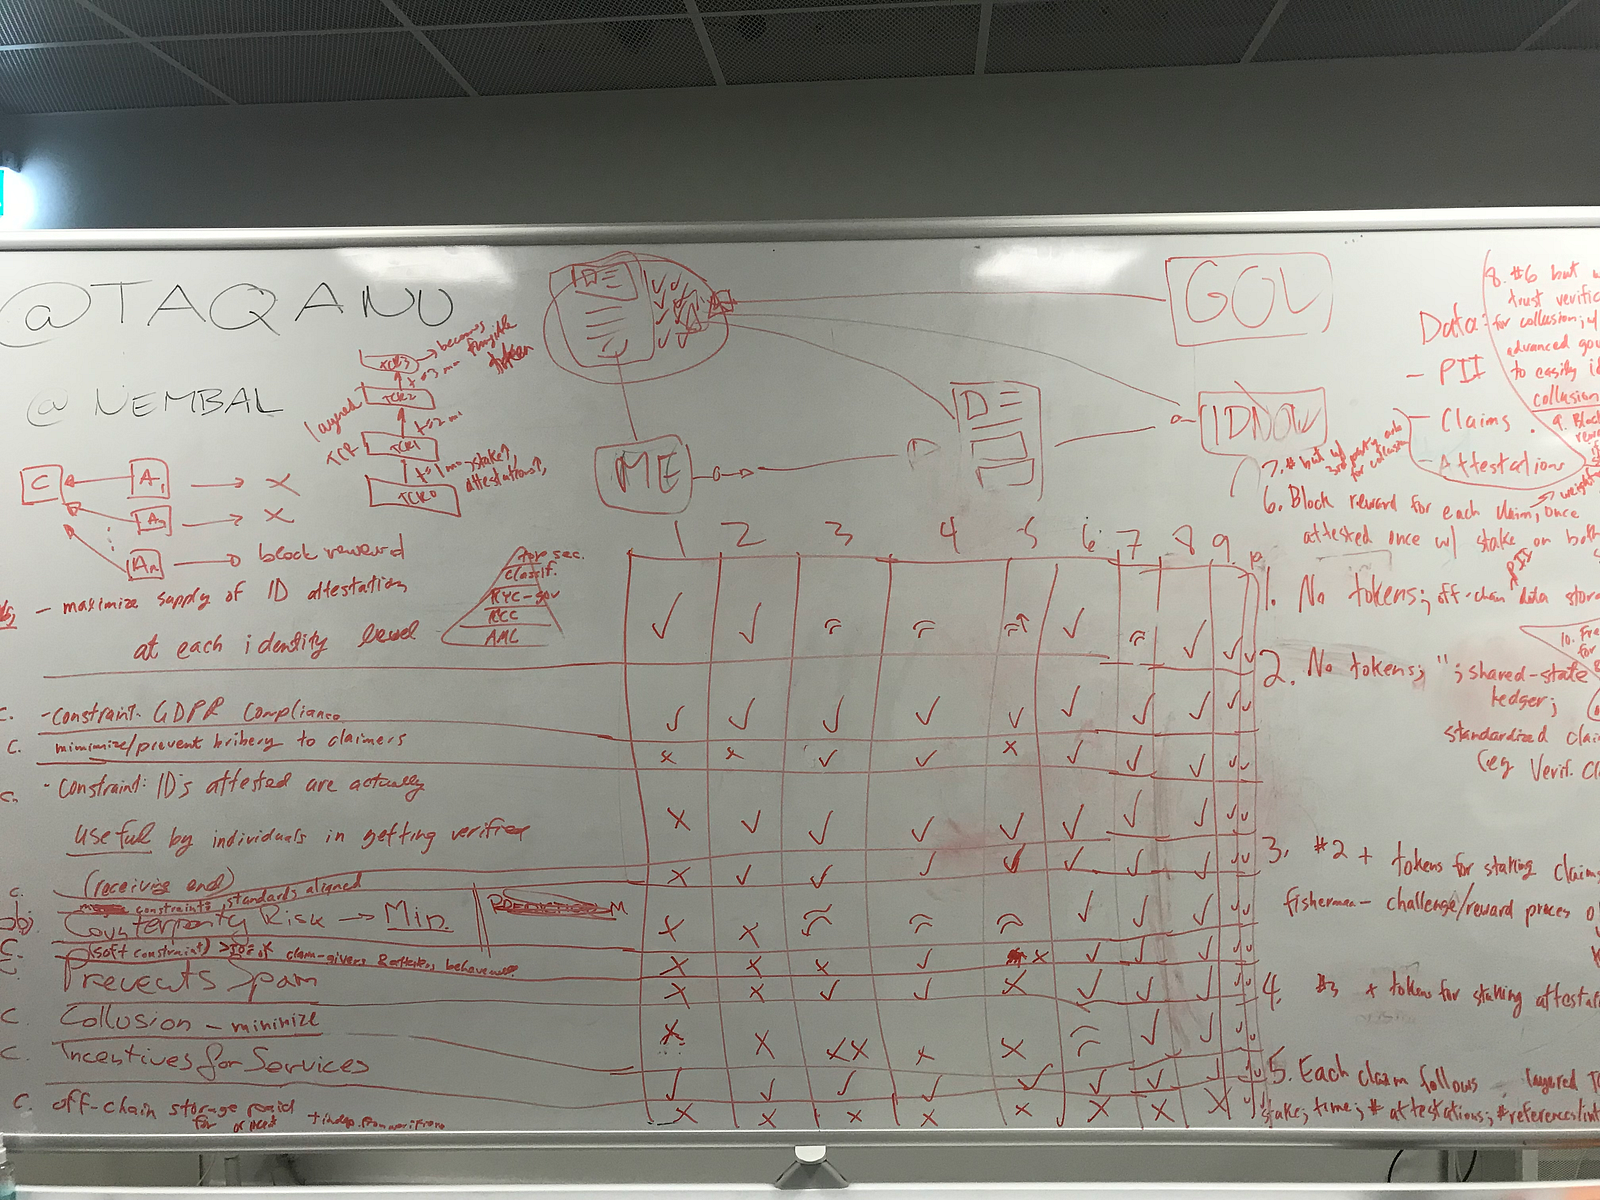 @TAQANU
@ NEMBAL
TCR3 → becomes fungible token
t=3m
TCR2
t=2m
layered
TCR
TCR1
t=1m → stake↑, attestations↑,
TCR0
C
A₁ → X
→ X
Aₙ → block reward
ID
ME
ID
GOV
IDNOW
Data:
- PII
- Claims
- Attestations
8. #6 but
trust verific
for collusion;
advanced gov
to easily
collusion
9. Block
7. # but w/
3rd party
for collusion
6. Block reward for each claim, once
attested once w/ stake on both
weight
obj - maximize supply of ID attestation
at each identity level
top sec.
classif.
KYC-gov
KCC
AML
1 2 3 4 5 6 7 8 9 10
C. -constraint- GDPR Compliance
C. minimize/prevent bribery to claimers
C. - constraint: IDs attested are actually
useful by individuals in getting verified
(receiving end)
C. constraint: standards aligned
obj Counterparty Risk → Min.
C. (soft constraint) >50% of claim-givers & attesters behave
C. Prevents Spam
C. Collusion - minimize
C. Incentives for Services
C. off-chain storage paid
for
1. No tokens; off-chain PII data stora
2. No tokens; "; shared-state
ledger;
standardized clai
(eg Verif. Cl
10. Fre
for
3. #2 + tokens for staking claims
fisherman - challenge/reward process
4. #3 + tokens for staking attesta
5. Each claim follows layered T
stake; time; # attestations; #references/int